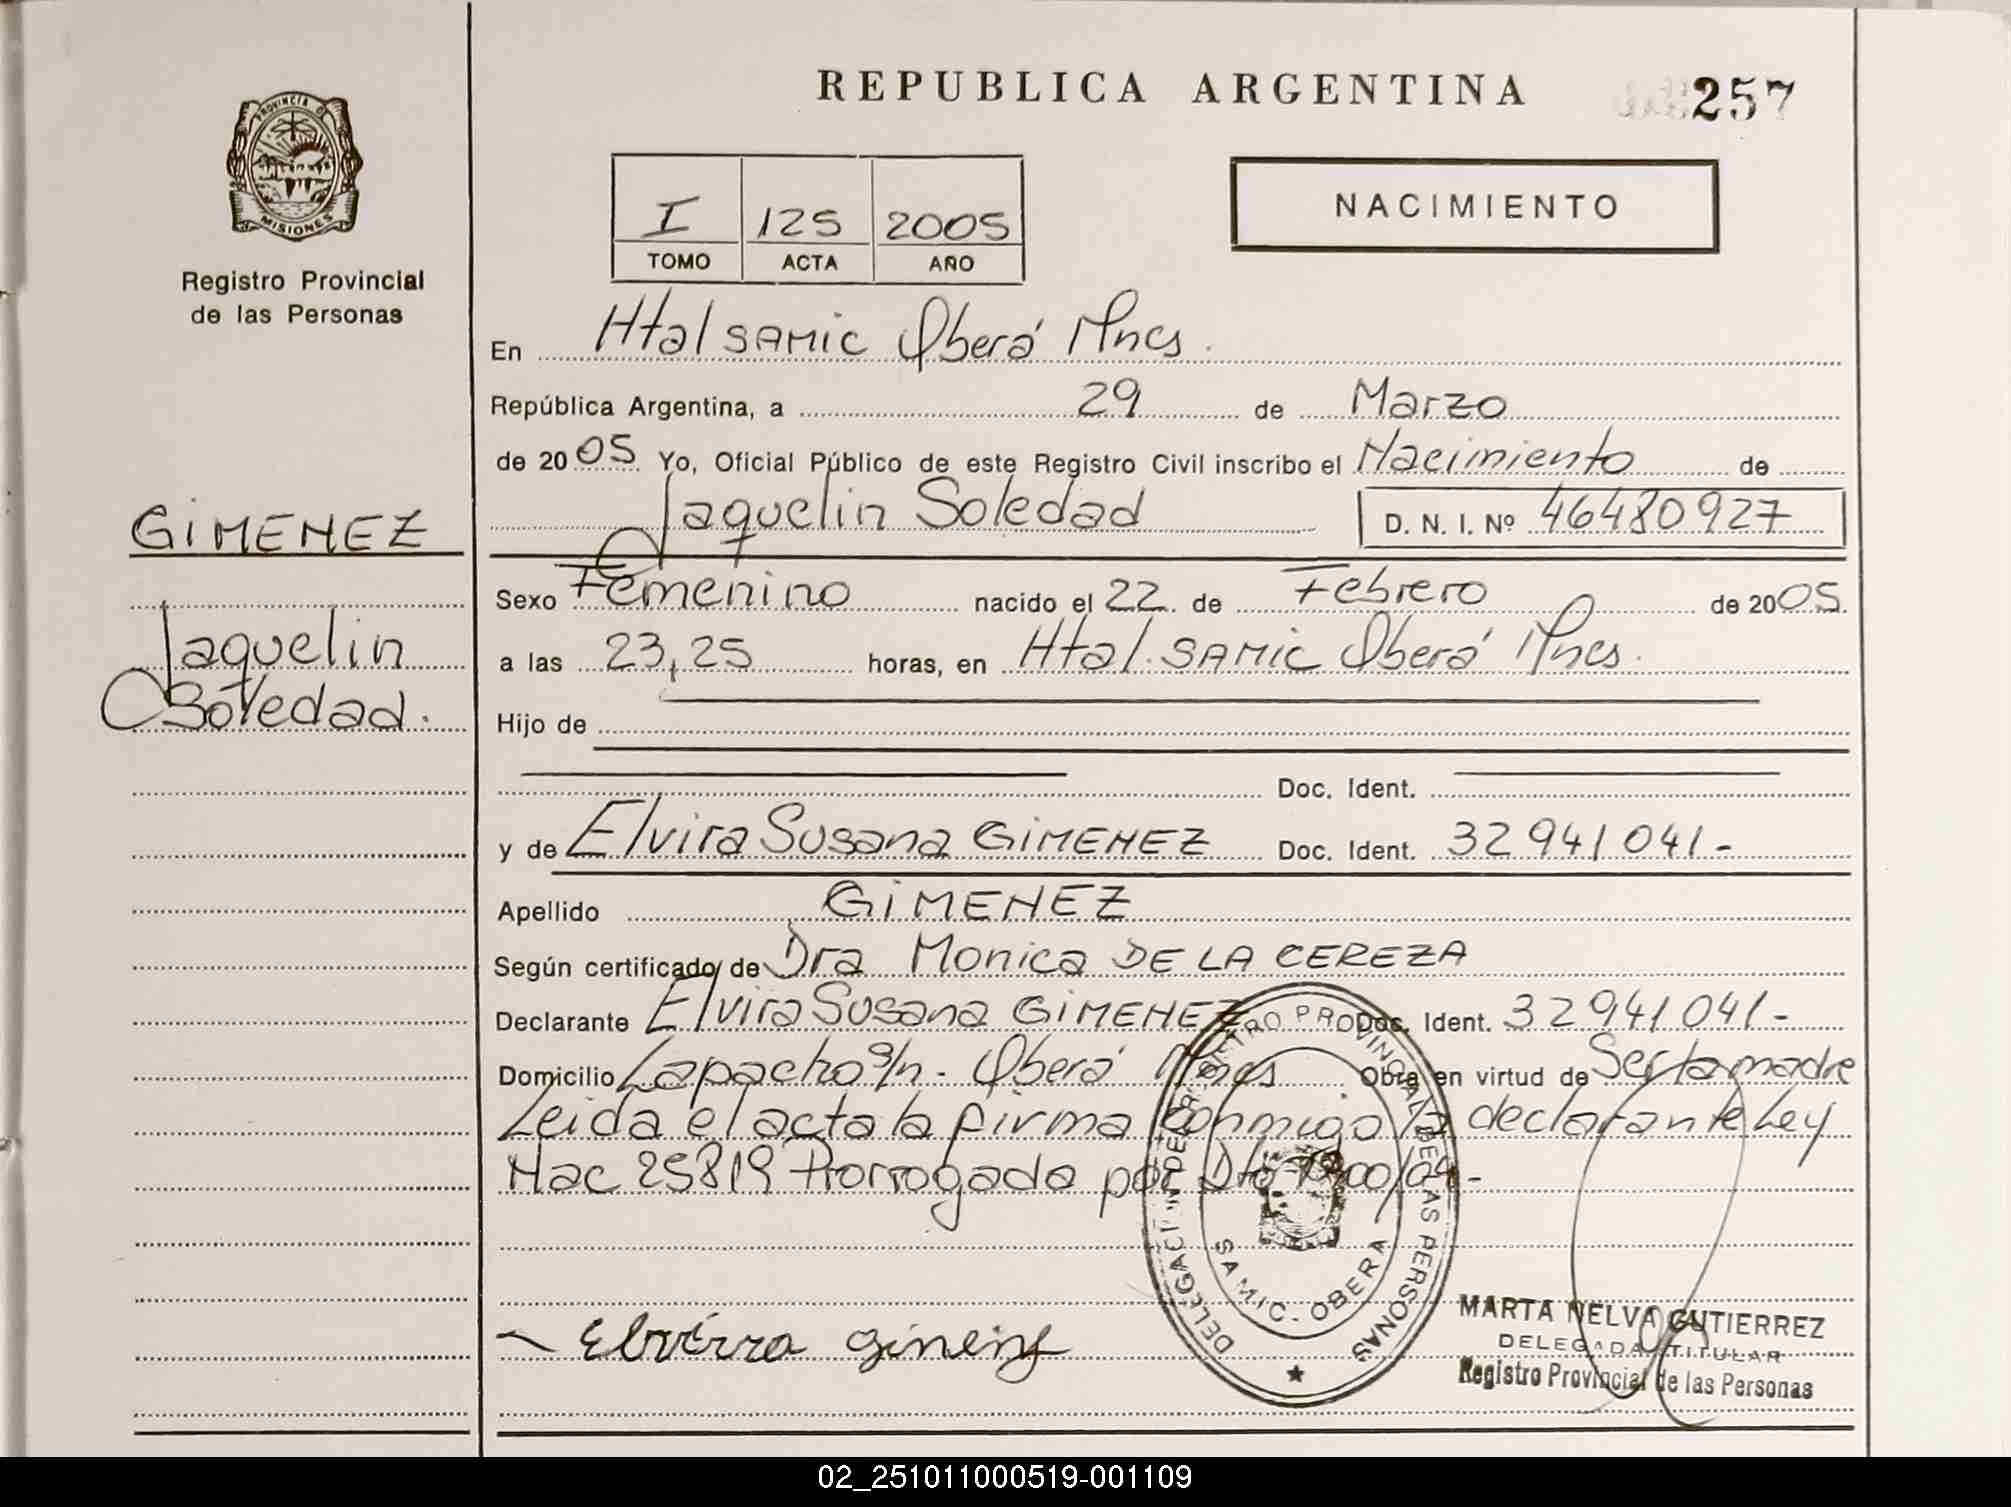 REPUBLICA ARGENTINA
257
PROVINCIA DE
MISIONES
Registro Provincial
de las Personas
I 125 2005
TOMO ACTA AÑO
NACIMIENTO
En Htal SAMIC Oberá Mnes.
República Argentina, a 29 de Marzo
de 2005 Yo, Oficial Público de este Registro Civil inscribo el Nacimiento de
Jaquelin Soledad D. N. I. Nº 46480927
GIMENEZ
Jaquelin
Soledad.
Sexo Femenino nacido el 22 de Febrero de 2005.
a las 23,25 horas, en Htal. SAMIC Oberá Mnes.
Hijo de
Doc. Ident.
y de Elvira Susana GIMENEZ Doc. Ident. 32941041-
Apellido GIMENEZ
Según certificado de Dra Monica DE LA CEREZA
Declarante Elvira Susana GIMENEZ Doc. Ident. 32941041-
Domicilio Lapacho s/n - Oberá Mnes Obra en virtud de Ser la madre
Leida el acta la firma conmigo la declarante Ley
Nac 25819 Prorrogada por Dto 1900/04-
DELEGACION DEL REGISTRO PROVINCIAL DE LAS PERSONAS
SAMIC - OBERA
MARTA NELVA GUTIERREZ
DELEGADA TITULAR
Registro Provincial de las Personas
02_251011000519-001109